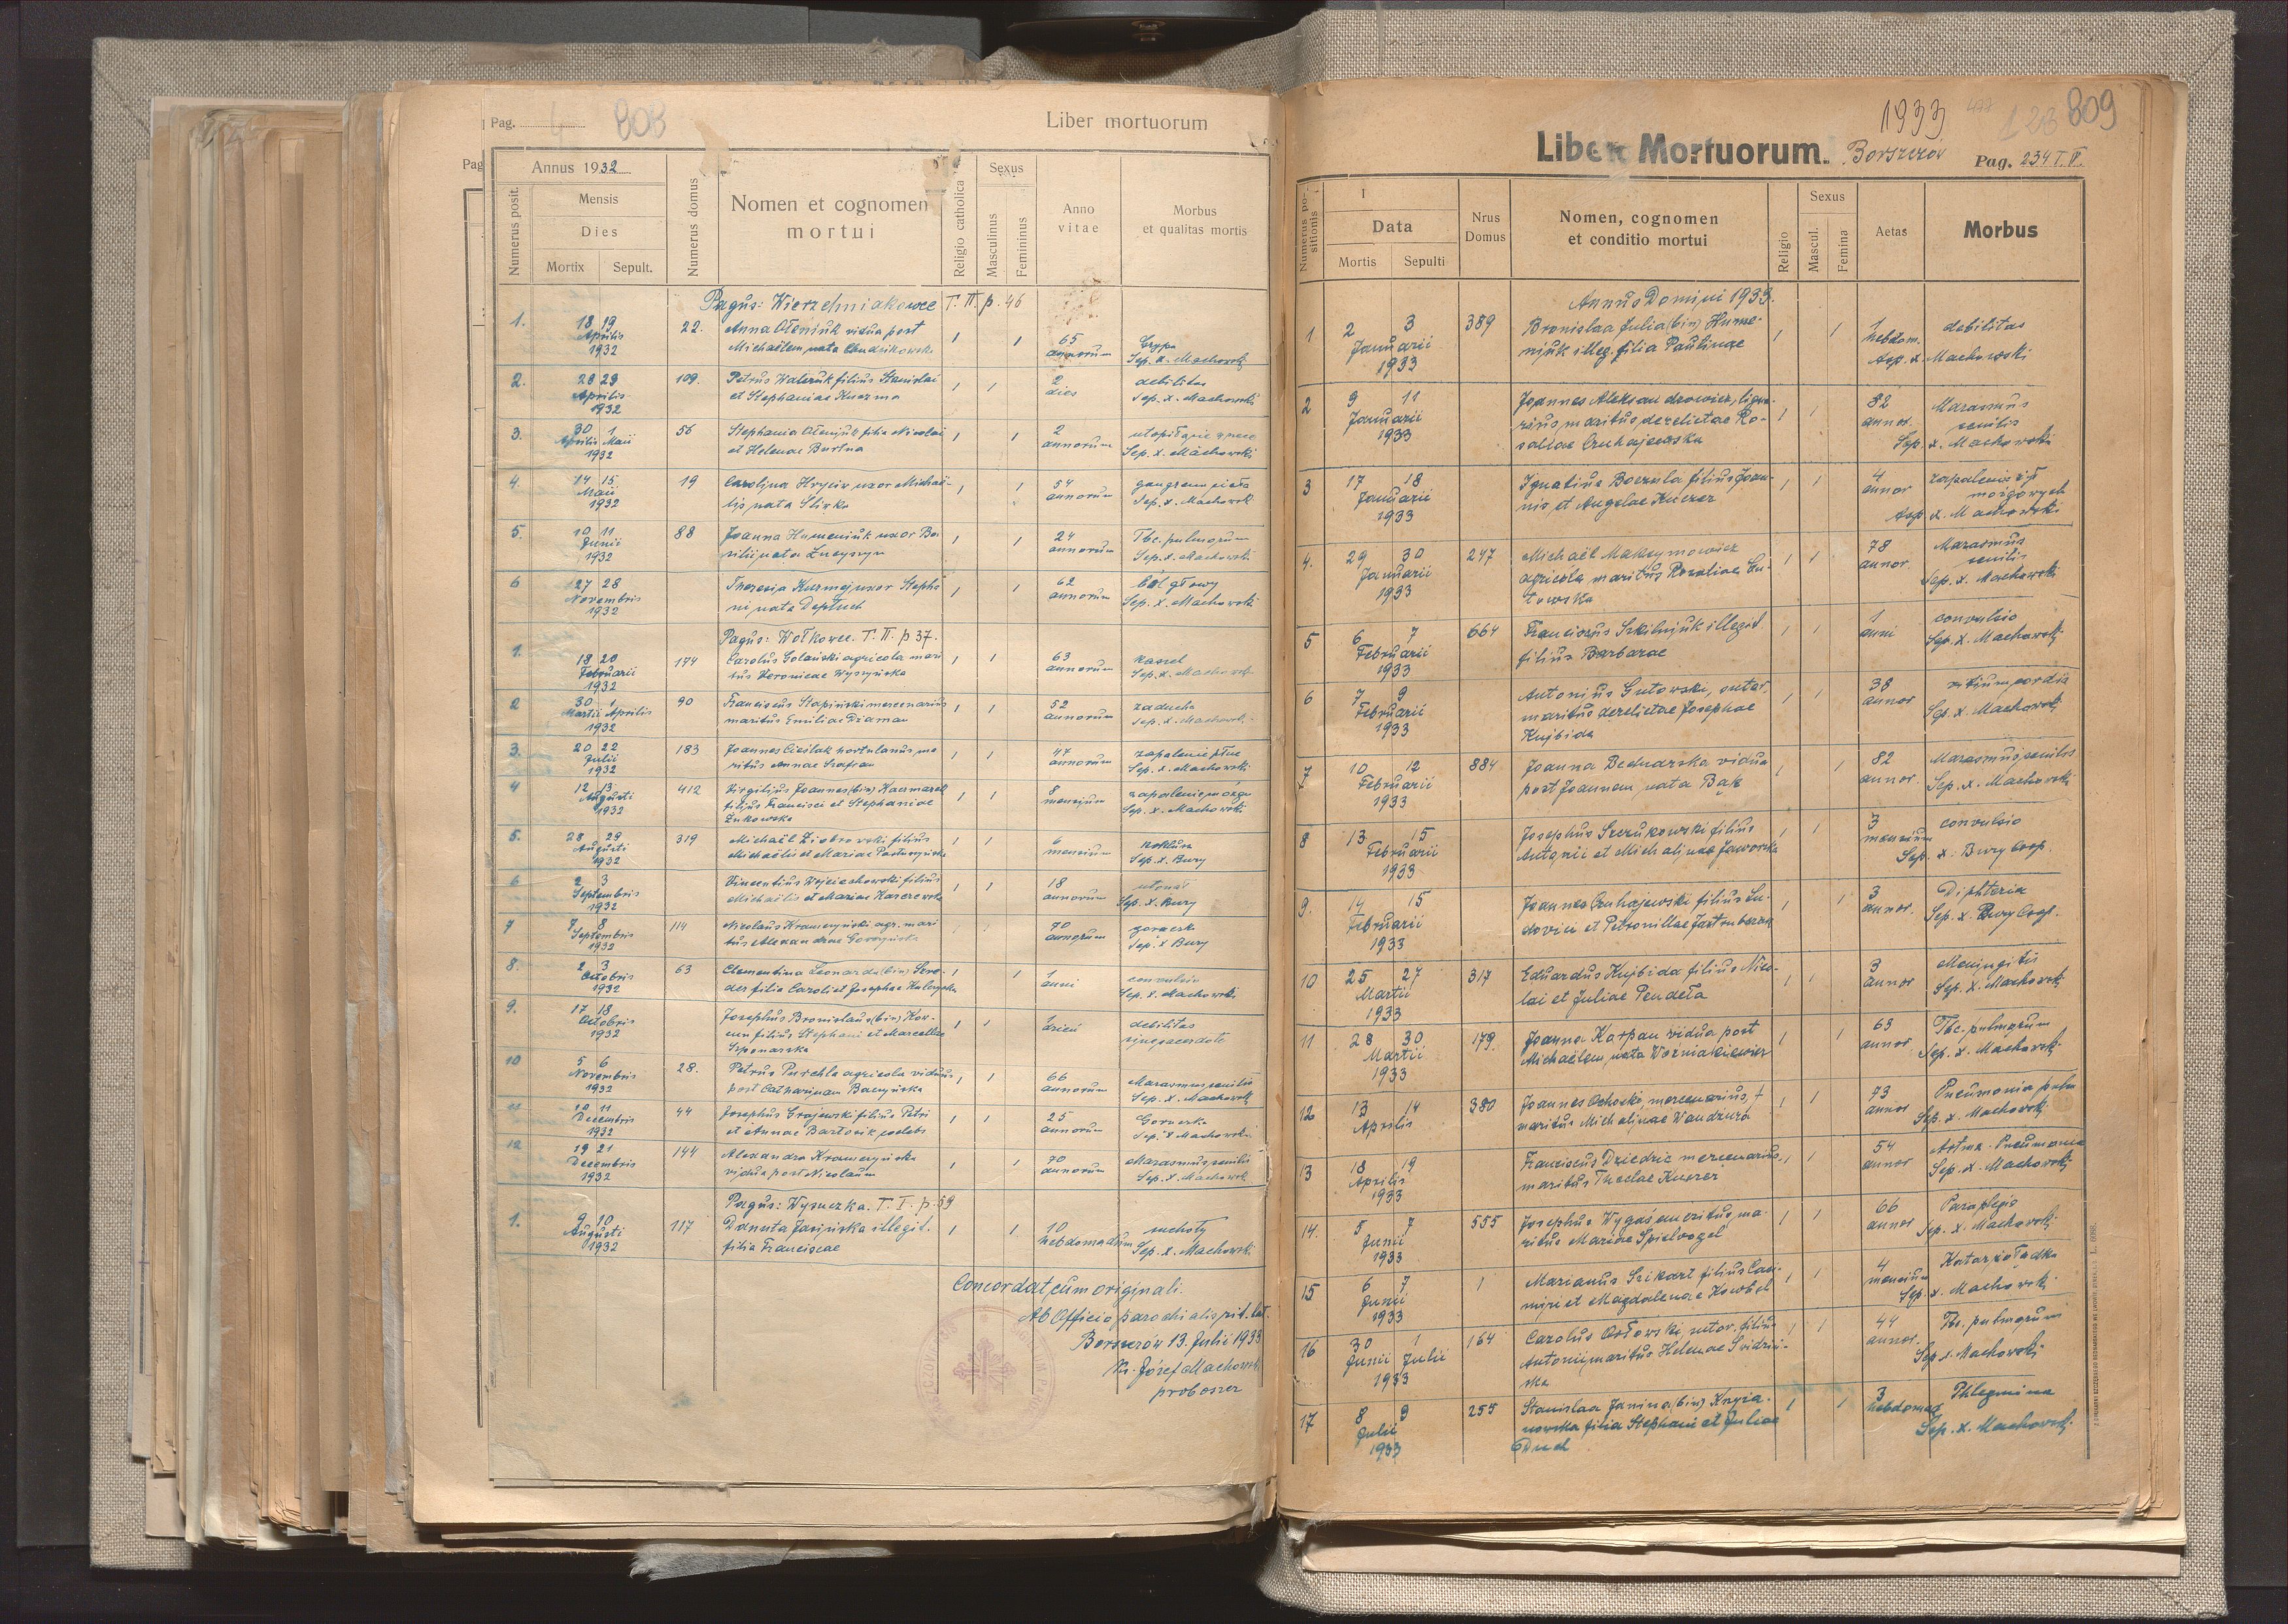 Pag.
808
Liber mortuorum
Annus 1932
Numerus posit.
Mensis
Dies
Mortix Sepult.
Numerus domus
Nomen et cognomen
mortui
Religio catholica
Sexus
Masculinus
Femininus
Anno
vitae
Morbus
et qualitas mortis
Pagus: Wierzchniakowce T. II. p. 46
1. 18 19 Aprilis 1932 22. Anna Oleniuk vidua post
Michaëlem nata 65 annorum Grypa
Sep. x. Machowski
2. 28 29 Aprilis 1932 109. Petrus Walczuk filius Stanislai
et Stephaniae Kuzma 2 dies debilitas
Sep. x. Machowski
3. 30 1 Aprilis Maii 1932 56 Stephania Olenjuk filia Nicolai
et Helenae Burtna 2 annorum
Sep. x. Machowski
4. 14 15 Maii 1932 19 Carolina Hryciv uxor Michaë-
lis nata Slivka 54 annorum
Sep. x. Machowski
5. 10 11 Junii 1932 88 Joanna Humeniuk uxor Ba-
silii nata 24 annorum Tbc. pulmorum
Sep. x. Machowski
6 27 28 Novembris 1932 Theresia uxor Stepha-
ni nata 62 annorum ból głowy
Sep. x. Machowski
Pagus: Wołkowce. T. II. p 37.
1. 18 20 Februarii 1932 174 Carolus Golański agricola mari-
tus Veronicae Wyszyńska 63 annorum kaszel
Sep. x. Machowski
2 30 1 Martii Aprilis 1932 90 Franciscus Stapiński mercenarius
maritus Emiliae Diaman 52 annorum zaducha
Sep. x. Machowski
3. 20 22 Julii 1932 183 Joannes Cieślak hortulanus ma-
ritus Annae Szafran 47 annorum zapalenie płuc
Sep. x. Machowski
4 12 13 Augusti 1932 412 Virgilius Joannes (bin) Kaczmarek
filius Francisci et Stephaniae
Żukowska 8 mensium zapalenie mozgu
Sep. x. Machowski
5. 28 29 Augusti 1932 319 Michaël Ziobrowski filius
Michaëlis et Mariae 6 mensium koklusz
Sep. x. Bury
6 2 3 Septembris 1932 Vincentius Wojciechowski filius
Michaëlis et Mariae 18 annorum utonął
Sep. x. Bury
7 7 8 Septembris 1932 114 Nicolaus Kramczyński agr. mari-
tus Alexandrae 70 annorum
Sep. x Bury
8. 2 3 Octobris 1932 63 Clementina Leonarda (bin) Szre-
der filia Caroli et Josephae 1 anni convulsio
Sep. x. Machowski
9. 17 18 Octobris 1932 Josephus Bronislaus (bin) Kor-
filius Stephani et Marcellae
Szponarska 1 dzień debilitas
sine sacerdote
10 5 6 Novembris 1932 28. Petrus Purchla agricola viduus
post Catharinam Baczyńska 66 annorum Marasmus senilis
Sep. x. Machowski
11 10 11 Decembris 1932 44 Josephus Grajewski filius Petri
et Annae Bartosik coelebs 25 annorum
Sep. x Machowski
12 19 21 Decembris 1932 144 Alexandra Kramczyńska
vidua post Nicolaum 70 annorum Marasmus senilis
Sep. x. Machowski
Pagus: Wysuczka. T. I. p. 59
1. 9 10 Augusti 1932 117 Danuta Jasińska illegit.
filia Franciscae 10 hebdomadum suchoty
Sep. x. Machowski
Concordat cum originali.
Ab Officio parochialis rit. lat.
Borszczów 13. Julii 1933
Ks. Józef Machowski
proboszcz
1933
809
Liber Mortuorum. Borszczów Pag. 234 T. IV.
Numerus positionis
Data
Mortis Sepulti
Nrus
Domus
Nomen, cognomen
et conditio mortui
Religio
Sexus
Mascul.
Femina
Aetas
Morbus
Annus Domini 1933.
1 2 3 Januarii 1933 389 Bronislaa Julia (bin) Hume-
niuk illeg. filia Paulinae 1 hebdom. debilitas
Sep. x. Machowski
2 9 11 Januarii 1933 Joannes Aleksandrowicz, ligna-
rius maritus derelictae Ro-
saliae Czuhajewska 82 annor. Marasmus
senilis
Sep. x. Machowski
3 17 18 Januarii 1933 Ignatius Boczula filius Joan-
nis et Angelae Kuczer 4 annor zapalenie żył
mózgowych
Sep. x. Machowski
4. 29 30 Januarii 1933 247 Michaël Maksymowicz
agricola maritus Rosaliae Lu-
towska 78 annor. Marasmus
senilis
Sep. x. Machowski
5 6 7 Februarii 1933 664 Franciscus Szkilnjuk illegit.
filius Barbarae 1 anni convulsio
Sep. x. Machowski
6 7 9 Februarii 1933 Antonius Gutowski, sutor,
maritus derelictae Josephae
Kujbida 38 annor vitium cordis
Sep. x. Machowski
7 10 12 Februarii 1933 884 Joanna Bednarska vidua
post Joannem, nata Bąk 82 annor. Marasmus senilis
Sep. x. Machowski
8 13 15 Februarii 1933 Josephus Szczukowski filius
Antonii et Michalinae Jaworska 3 mensium convulsio
Sep. x. Bury Coop.
9. 14 15 Februarii 1933 Joannes Czuhajewski filius Lu-
dovici et Petronillae Jastrubczak 3 annor. Diphteria
Sep. x. Bury Coop.
10 25 27 Martii 1933 317 Eduardus Kujbida filius Nico-
lai et Juliae Pendeta 3 annor Meningitis
Sep. x. Machowski
11 28 30 Martii 1933 179 Joanna Karpan vidua post
Michaëlem, nata Woźniakiewicz 63 annor Tbc. pulmorum
Sep. x. Machowski
12 13 14 Aprilis 380 Joannes Ochocki, mercenarius, †
maritus Michalinae Wandziura 73 annor Pneumonia pulm
Sep. x. Machowski
13 18 19 Aprilis 1933 Franciscus Dziedzic mercenarius,
maritus Theclae Kuczer 54 annor Astma - Pneumonia
Sep. x. Machowski
14. 5 7 Junii 1933 555 Josephus Wygaś emeritus ma-
ritus Mariae Spielvogel 66 annor Paraplegio
Sep. x. Machowski
15 6 7 Junii 1933 1 Marianus Szikart filius Casi-
miri et Magdalenae 4 mensium Katar żołądka
Sep. x. Machowski
16 30 1 Junii Julii 1933 164 Carolus Orłowski, sutor, filius
Antonii, maritus Helenae Svidziń-
ska 44 annor. Tbc. pulmorum
Sep x. Machowski
17 8 9 Julii 1933 255 Stanislaa Janina (bin) Krysa-
nowska filia Stephani et Juliae
Dud 3 hebdomad Phlegmina
Sep. x. Machowski